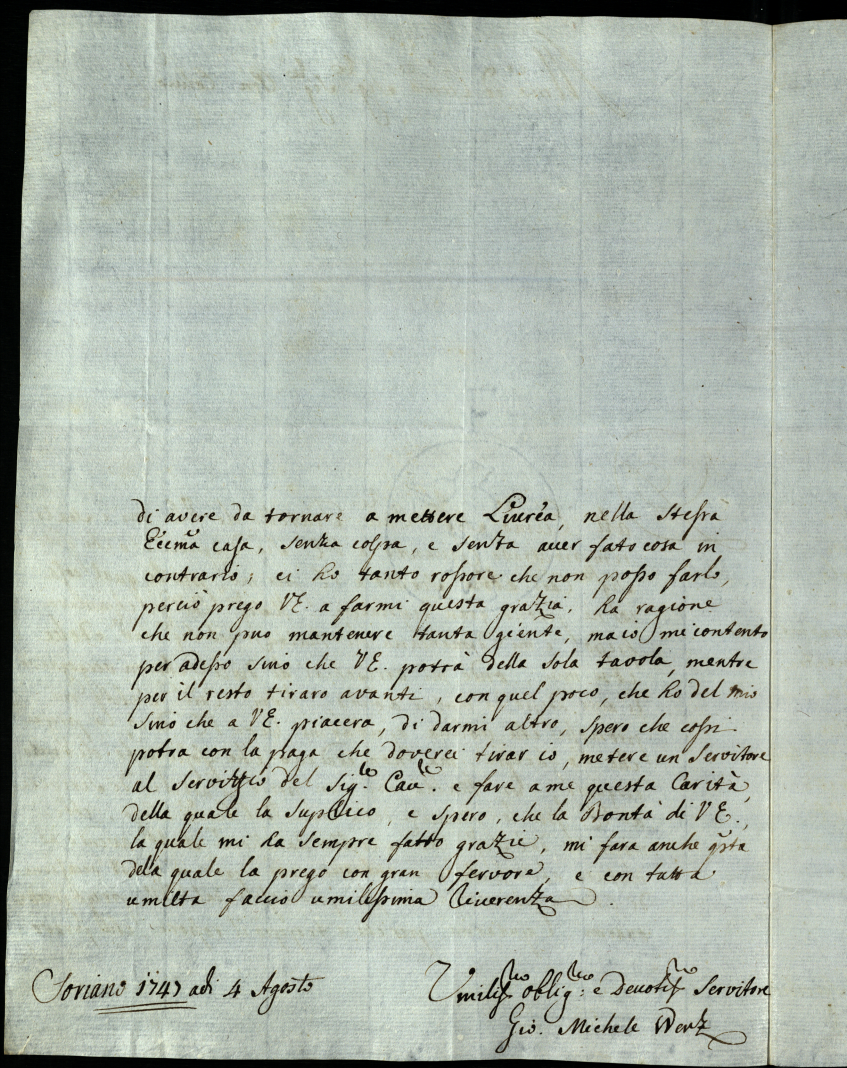 di avere da tornare a mettere Liurea, nella stessa
Eccma casa, senza colpa, e senza auer fato cosa in
contrario; ci ho tanto rossore che non posso farlo,
perciò prego VE. a farmi questa grazia, ha ragione
che non puo mantenere tanta gente, ma io mi contento
per adesso sino che VE. potrà della sola tavola, mentre
per il resto tiraro avanti, con quel poco, che ho del mio
sino che a VE. piacera, di darmi altro, spero che cossi
potra con la paga che doverei tirar io, metere un Servitore
al Servizio del Sigle. Caule. e fare a me questa Carità,
della quale la suplico, e spero, che la Bontà di VE.,
la quale mi ha sempre fatto grazie, mi fara anche qsta
dela quale la prego con gran fervore, e con tutta
umilta faccio umilissima Riuerenza.
Soriano 1747 adi 4 Agosto
Umilissmo obligmo: e Deuotissmo Servitore
Gio. Michele Wenz